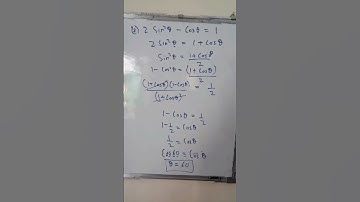 2 Sin²θ - Cosθ = 1
2 Sin²θ = 1 + Cosθ
Sin²θ = 1+Cosθ / 2
1 - Cos²θ = (1+Cosθ) / 2
(1+Cosθ)(1-Cosθ) / (1+Cosθ) = 1/2
1 - Cosθ = 1/2
1 - 1/2 = Cosθ
1/2 = Cosθ
Cos 60 = Cos θ
θ = 60